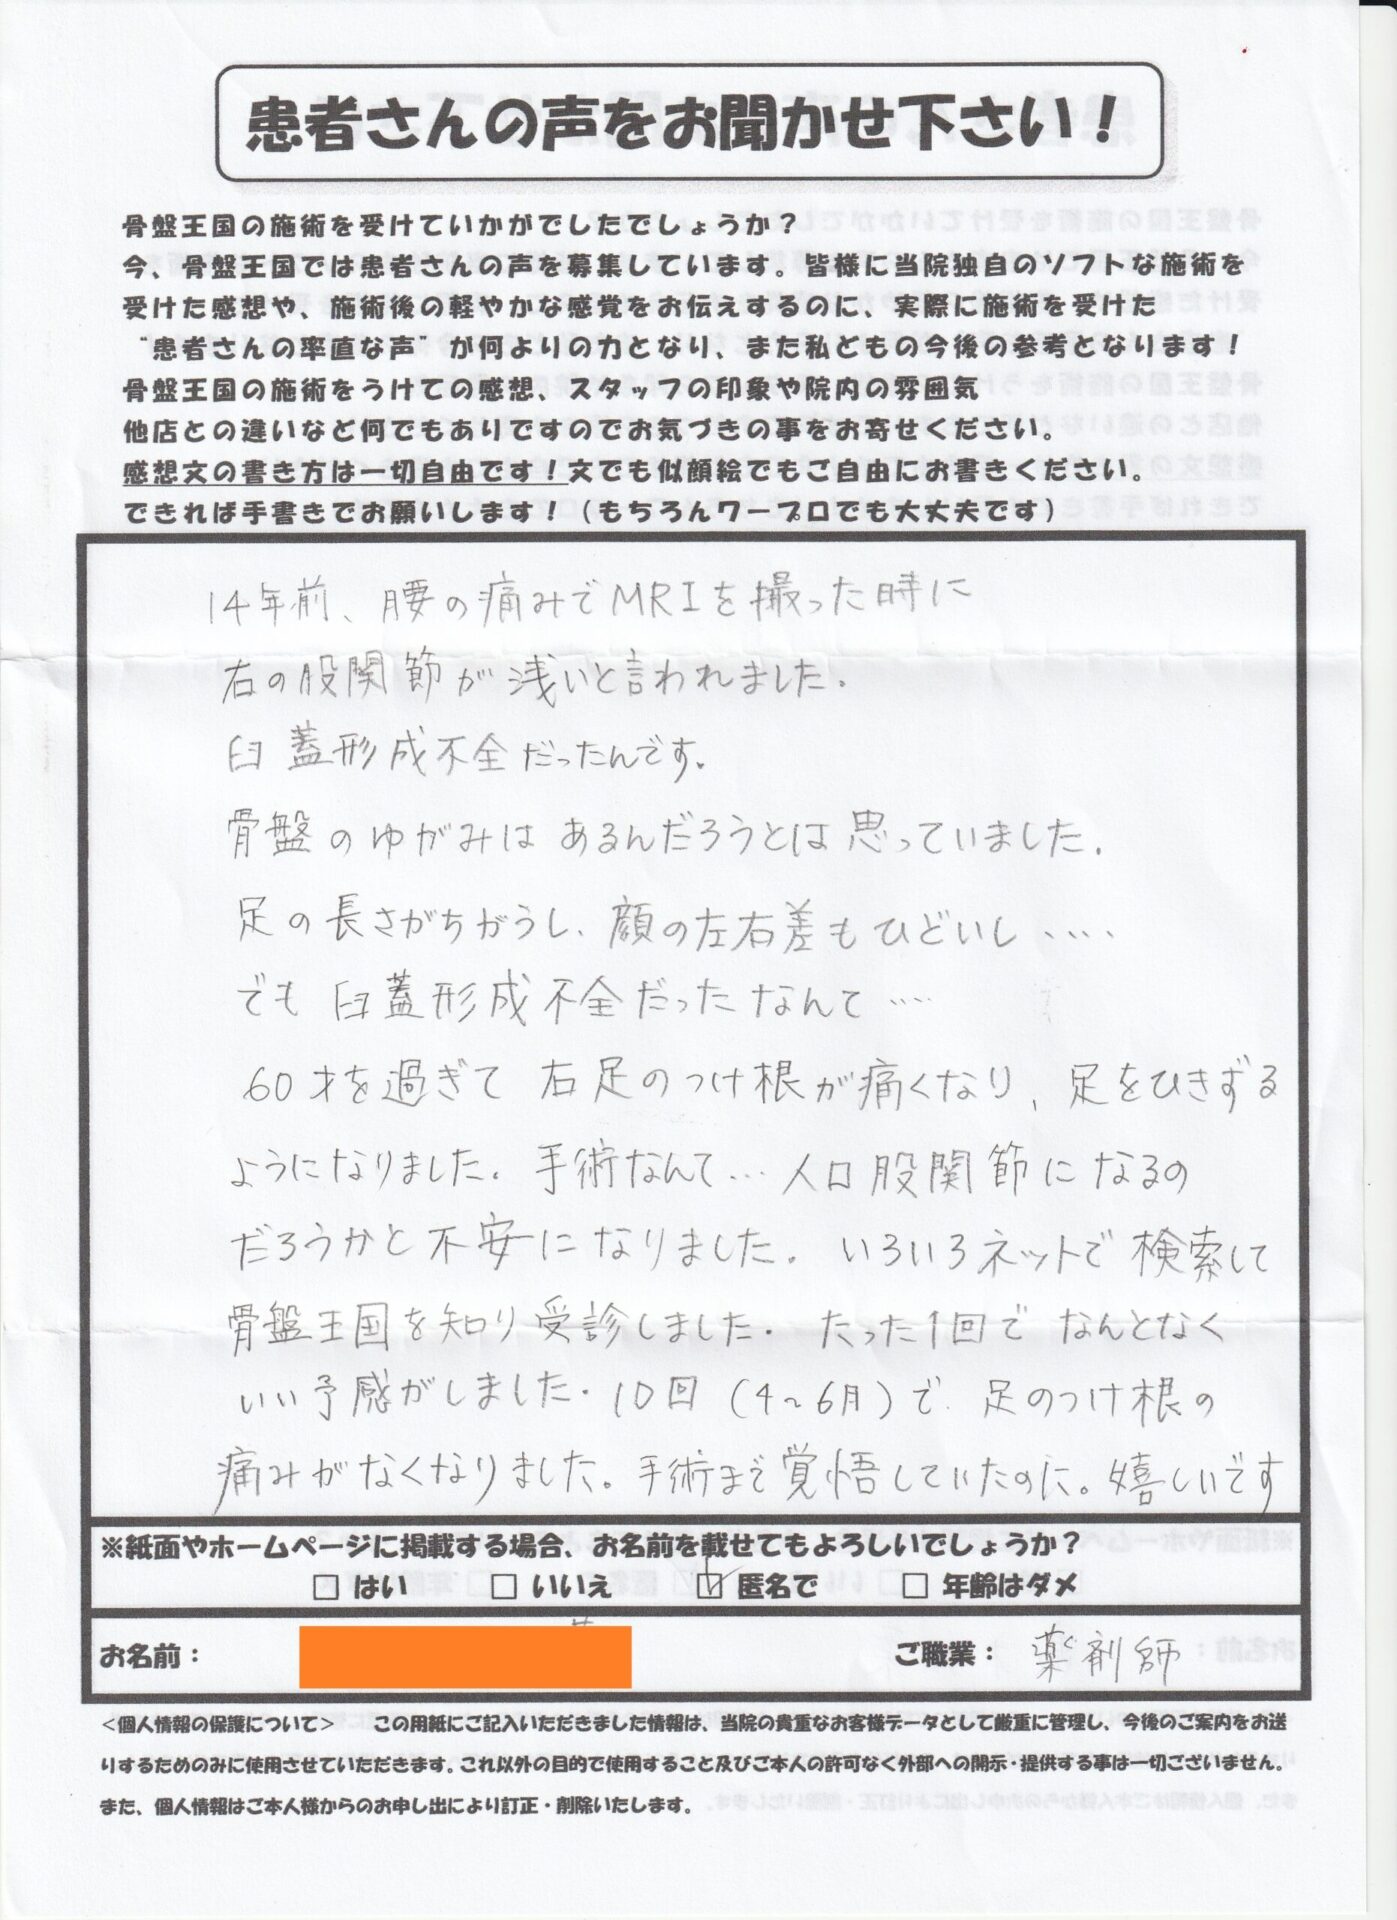 患者さんの声をお聞かせ下さい！
骨盤王国の施術を受けていかがでしたでしょうか？
今、骨盤王国では患者さんの声を募集しています。皆様に当院独自のソフトな施術を
受けた感想や、施術後の軽やかな感覚をお伝えするのに、実際に施術を受けた
“患者さんの率直な声”が何よりの力となり、また私どもの今後の参考となります！
骨盤王国の施術をうけての感想、スタッフの印象や院内の雰囲気
他店との違いなど何でもありですのでお気づきの事をお寄せください。
感想文の書き方は一切自由です！文でも似顔絵でもご自由にお書きください。
できれば手書きでお願いします！（もちろんワープロでも大丈夫です）
14年前、腰の痛みでMRIを撮った時に
右の股関節が浅いと言われました。
臼蓋形成不全だったんです。
骨盤のゆがみはあるんだろうとは思っていました。
足の長さがちがうし、顔の左右差もひどいし‥‥
でも臼蓋形成不全だったなんて‥‥
60才を過ぎて右足のつけ根が痛くなり、足をひきずる
ようになりました。手術なんて…人口股関節になるの
だろうかと不安になりました。いろいろネットで検索して
骨盤王国を知り受診しました。たった1回でなんとなく
いい予感がしました。10回（4～6月）で、足のつけ根の
痛みがなくなりました。手術まで覚悟していたのに。嬉しいです
※紙面やホームページに掲載する場合、お名前を載せてもよろしいでしょうか？
□ はい □ いいえ ☑ 匿名で □ 年齢はダメ
お名前： ご職業： 薬剤師
＜個人情報の保護について＞ この用紙にご記入いただきました情報は、当院の貴重なお客様データとして厳重に管理し、今後のご案内をお送
りするためのみに使用させていただきます。これ以外の目的で使用すること及びご本人の許可なく外部への開示・提供する事は一切ございません。
また、個人情報はご本人様からのお申し出により訂正・削除いたします。